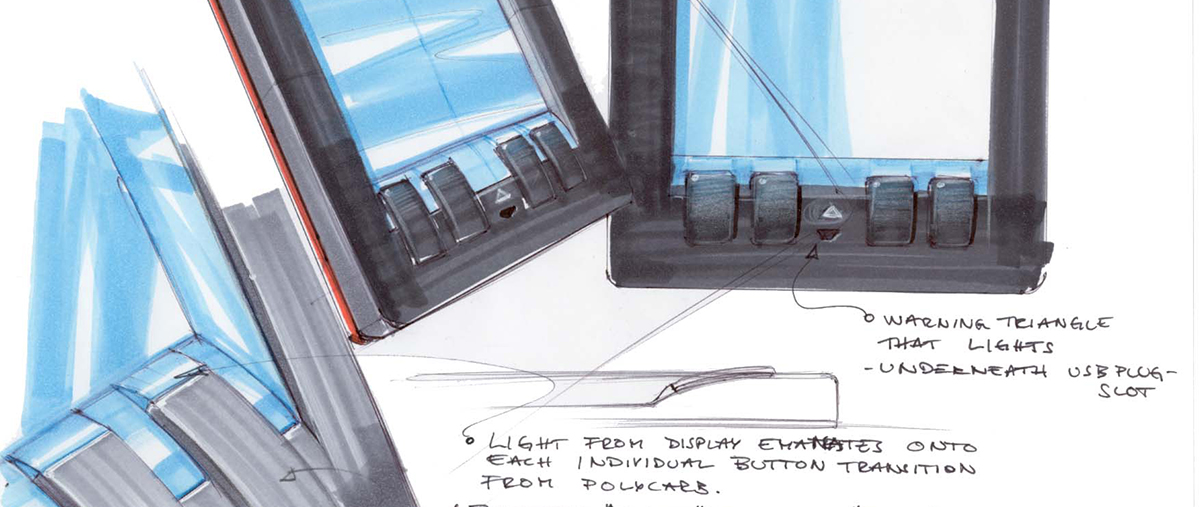 WARNING TRIANGLE
THAT LIGHTS
-UNDERNEATH USB PLUG-
SLOT
LIGHT FROM DISPLAY EMANATES ONTO
EACH INDIVIDUAL BUTTON TRANSITION
FROM POLYCARB.